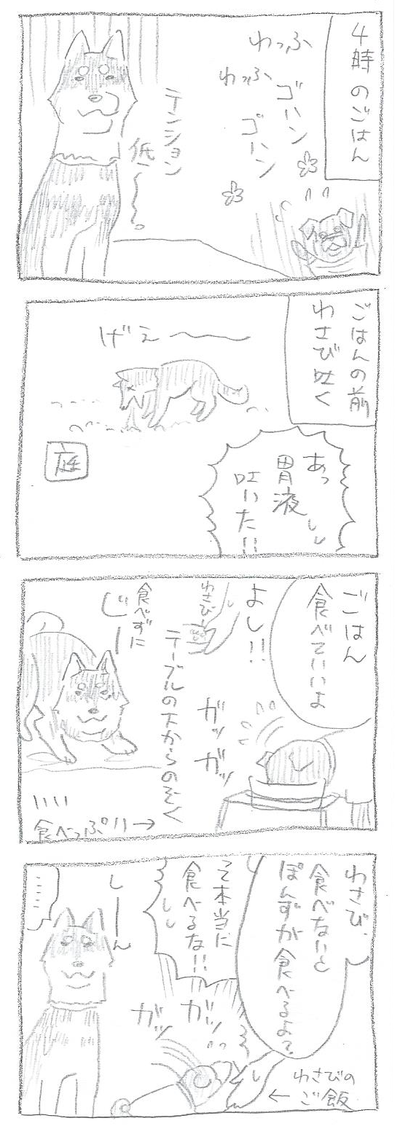 4時のごはん
わっふ
わっふ
ゴハン
ゴハン
テンション
低〜〜。
ごはんの前
わさび吐く
げえ〜〜
あっ
胃液
吐いた!!
庭
ごはん
食べていいよ
よし!!
わさび
ガッ
ガッ
テーブルの下からのぞく
食べずに
じーーー
食べっぷり→
わさび、
食べないと
ぽんずが食べるよ?
って本当に
食べるな!!
ガッ
ガッ
しーーん
……
わさびの
ご飯
←